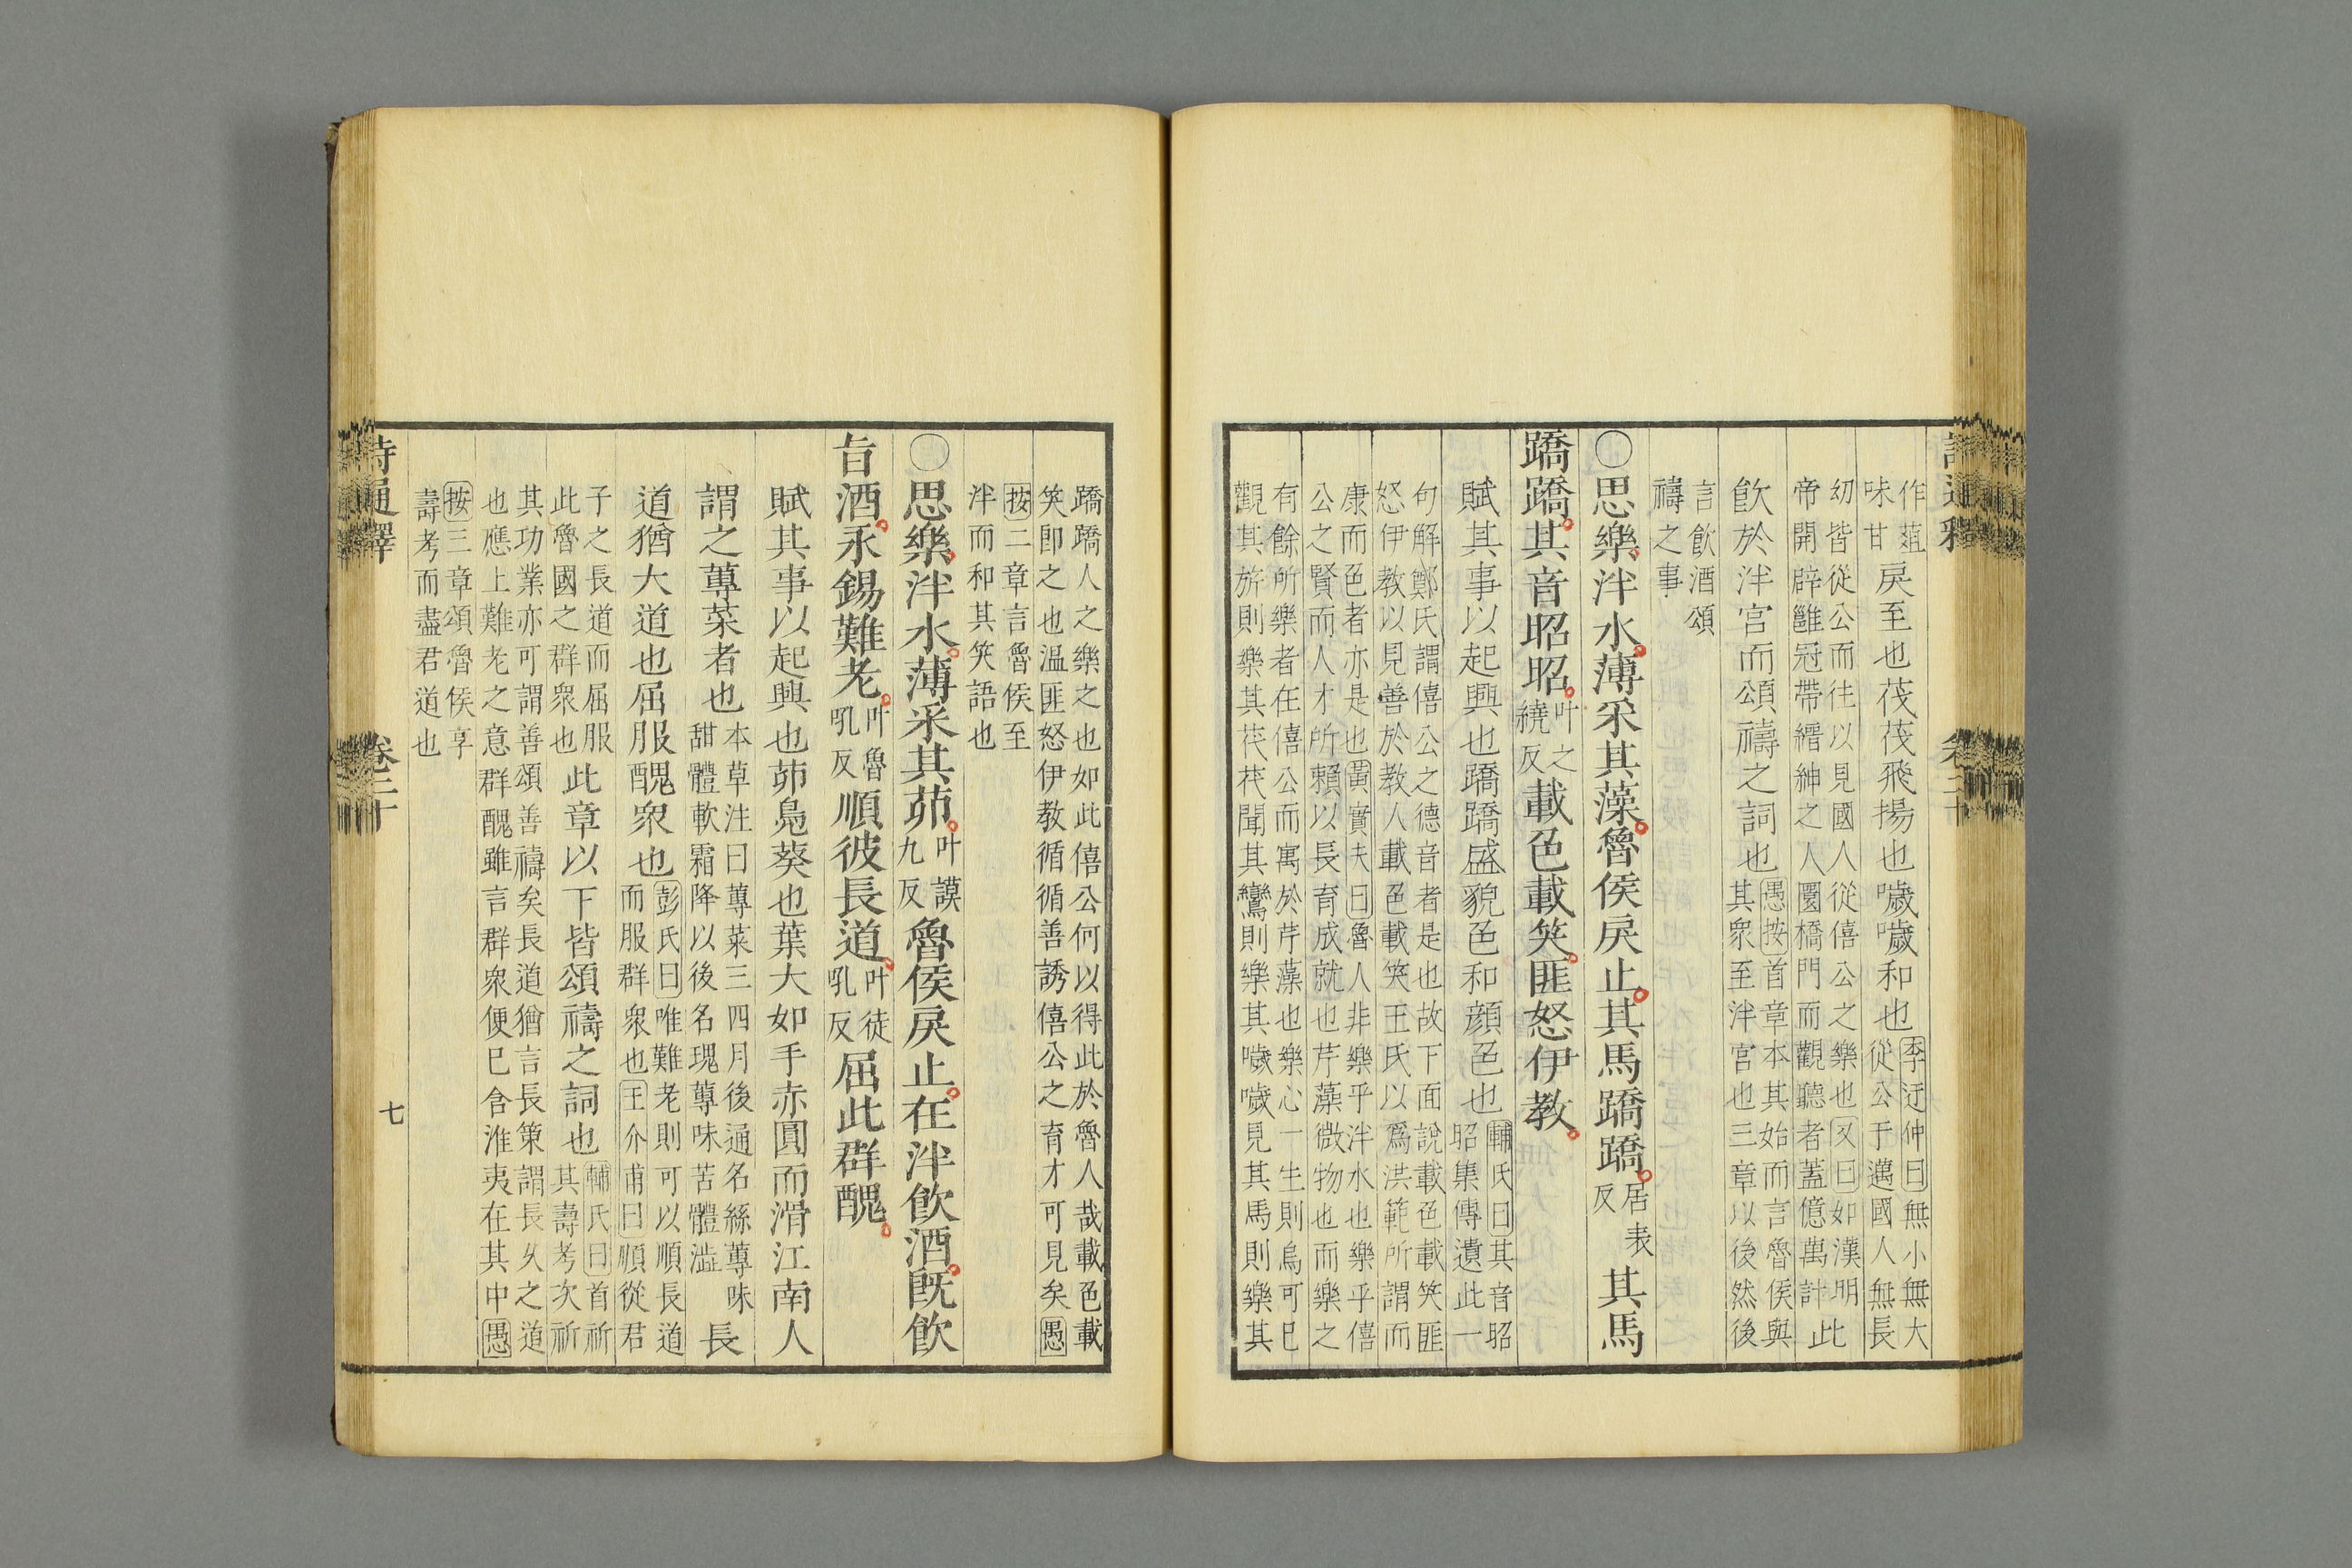 詩通釋 卷二十
作葅
味甘
戾至也茷茷飛揚也噦噦和也
李迂仲曰無小無大
從公于邁國人無長
㓜皆從公而往以見國人從僖公之樂也又曰如漢明
帝開辟雝冠帶縉紳之人圜橋門而觀聽者蓋億萬計
此
飮於泮宮而頌禱之詞也
愚按首章本其始而言魯侯與
其衆至泮宮也三章以後然後
言飮酒頌
禱之事
〇思樂泮水薄采其藻魯侯戾止其馬蹻蹻
居表
反
其馬
蹻蹻其音昭昭
叶之
繞反
載色載笑匪怒伊教
賦其事以起興也蹻蹻盛貌色和顔色也
輔氏曰其音昭
昭集傳遺此一
句解鄭氏謂僖公之德音者是也故下面說載色載笑匪
怒伊教以見善於教人載色載笑王氏以爲洪範所謂而
康而色者亦是也黃實夫曰魯人非樂乎泮水也樂乎僖
公之賢而人才所賴以長育成就也芹藻微物也而樂之
有餘所樂者在僖公而寓於芹藻也樂心一生則烏可巳
觀其旂則樂其茷茷聞其鸞則樂其噦噦見其馬則樂其
蹻蹻人之樂之也如此僖公何以得此於魯人哉載色載
笑卽之也溫匪怒伊教循循善誘僖公之育才可見矣愚
按二章言魯侯至
泮而和其笑語也
〇思樂泮水薄采其茆
叶謨
九反
魯侯戾止在泮飮酒旣飮
旨酒永錫難老
叶魯
吼反
順彼長道
叶徒
吼反
屈此群醜
賦其事以起興也茆鳧葵也葉大如手赤圓而滑江南人
謂之蓴菜者也
本草注曰蓴菜三四月後通名絲蓴味
甜體軟霜降以後名瑰蓴味苦體澁
長
道猶大道也屈服醜衆也
彭氏曰唯難老則可以順長道
而服群衆也王介甫曰順從君
子之長道而屈服
此魯國之群衆也
此章以下皆頌禱之詞也
輔氏曰首祈
其壽考次祈
其功業亦可謂善頌善禱矣長道猶言長策謂長久之道
也應上難老之意群醜雖言群衆便巳含淮夷在其中愚
按三章頌魯侯享
壽考而盡君道也
詩通釋 卷二十 七